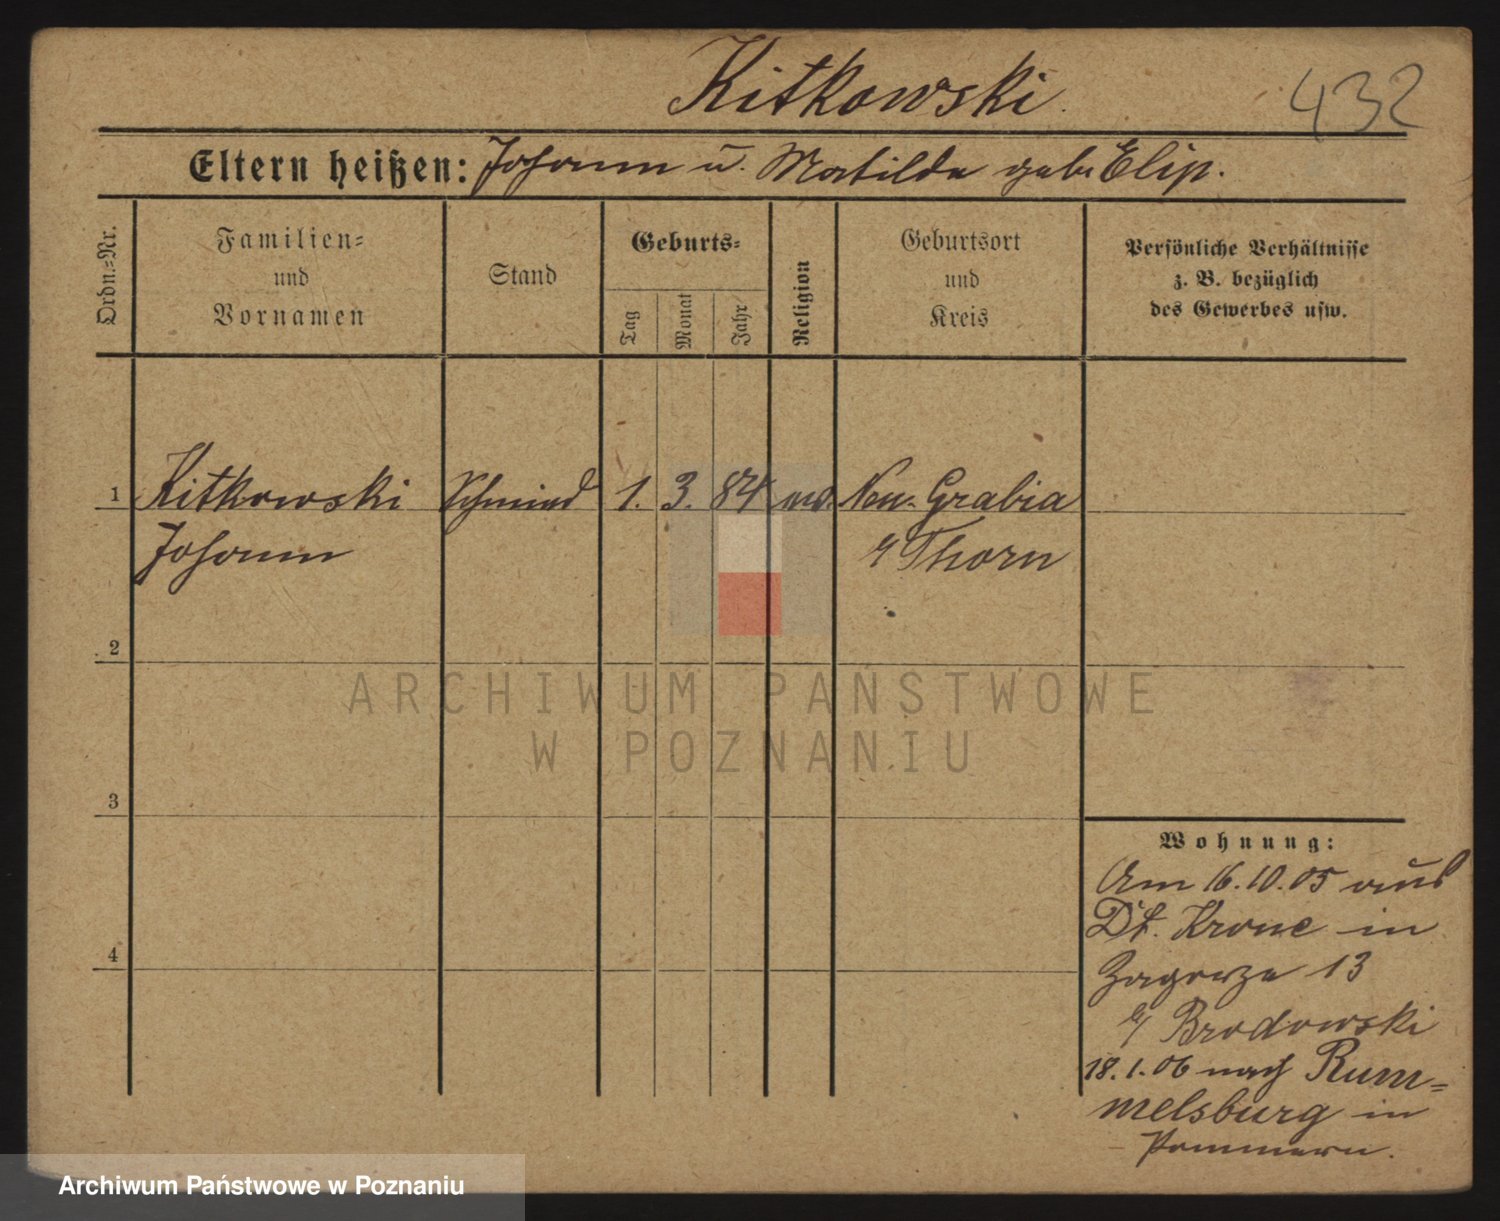 Kitkowski.
432
Eltern heißen: Johann u. Matilde geb. Elip.
Ordn.=Nr.
Familien=
und
Vornamen
Stand
Geburts=
Tag
Monat
Jahr
Religion
Geburtsort
und
Kreis
Persönliche Verhältnisse
z. B. bezüglich
des Gewerbes usw.
1 Kitkowski Schmied 1. 3. 84 ev. Neu-Grabia
Johann Thorn
2
3
4
ARCHIWUM PAŃSTWOWE
W POZNANIU
Wohnung:
Am 16.10.05 aus
Dt. Krone in
Zagorze 13
b/ Brodowski
18.1.06 nach Rum=
melsburg in
Pommern.
Archiwum Państwowe w Poznaniu